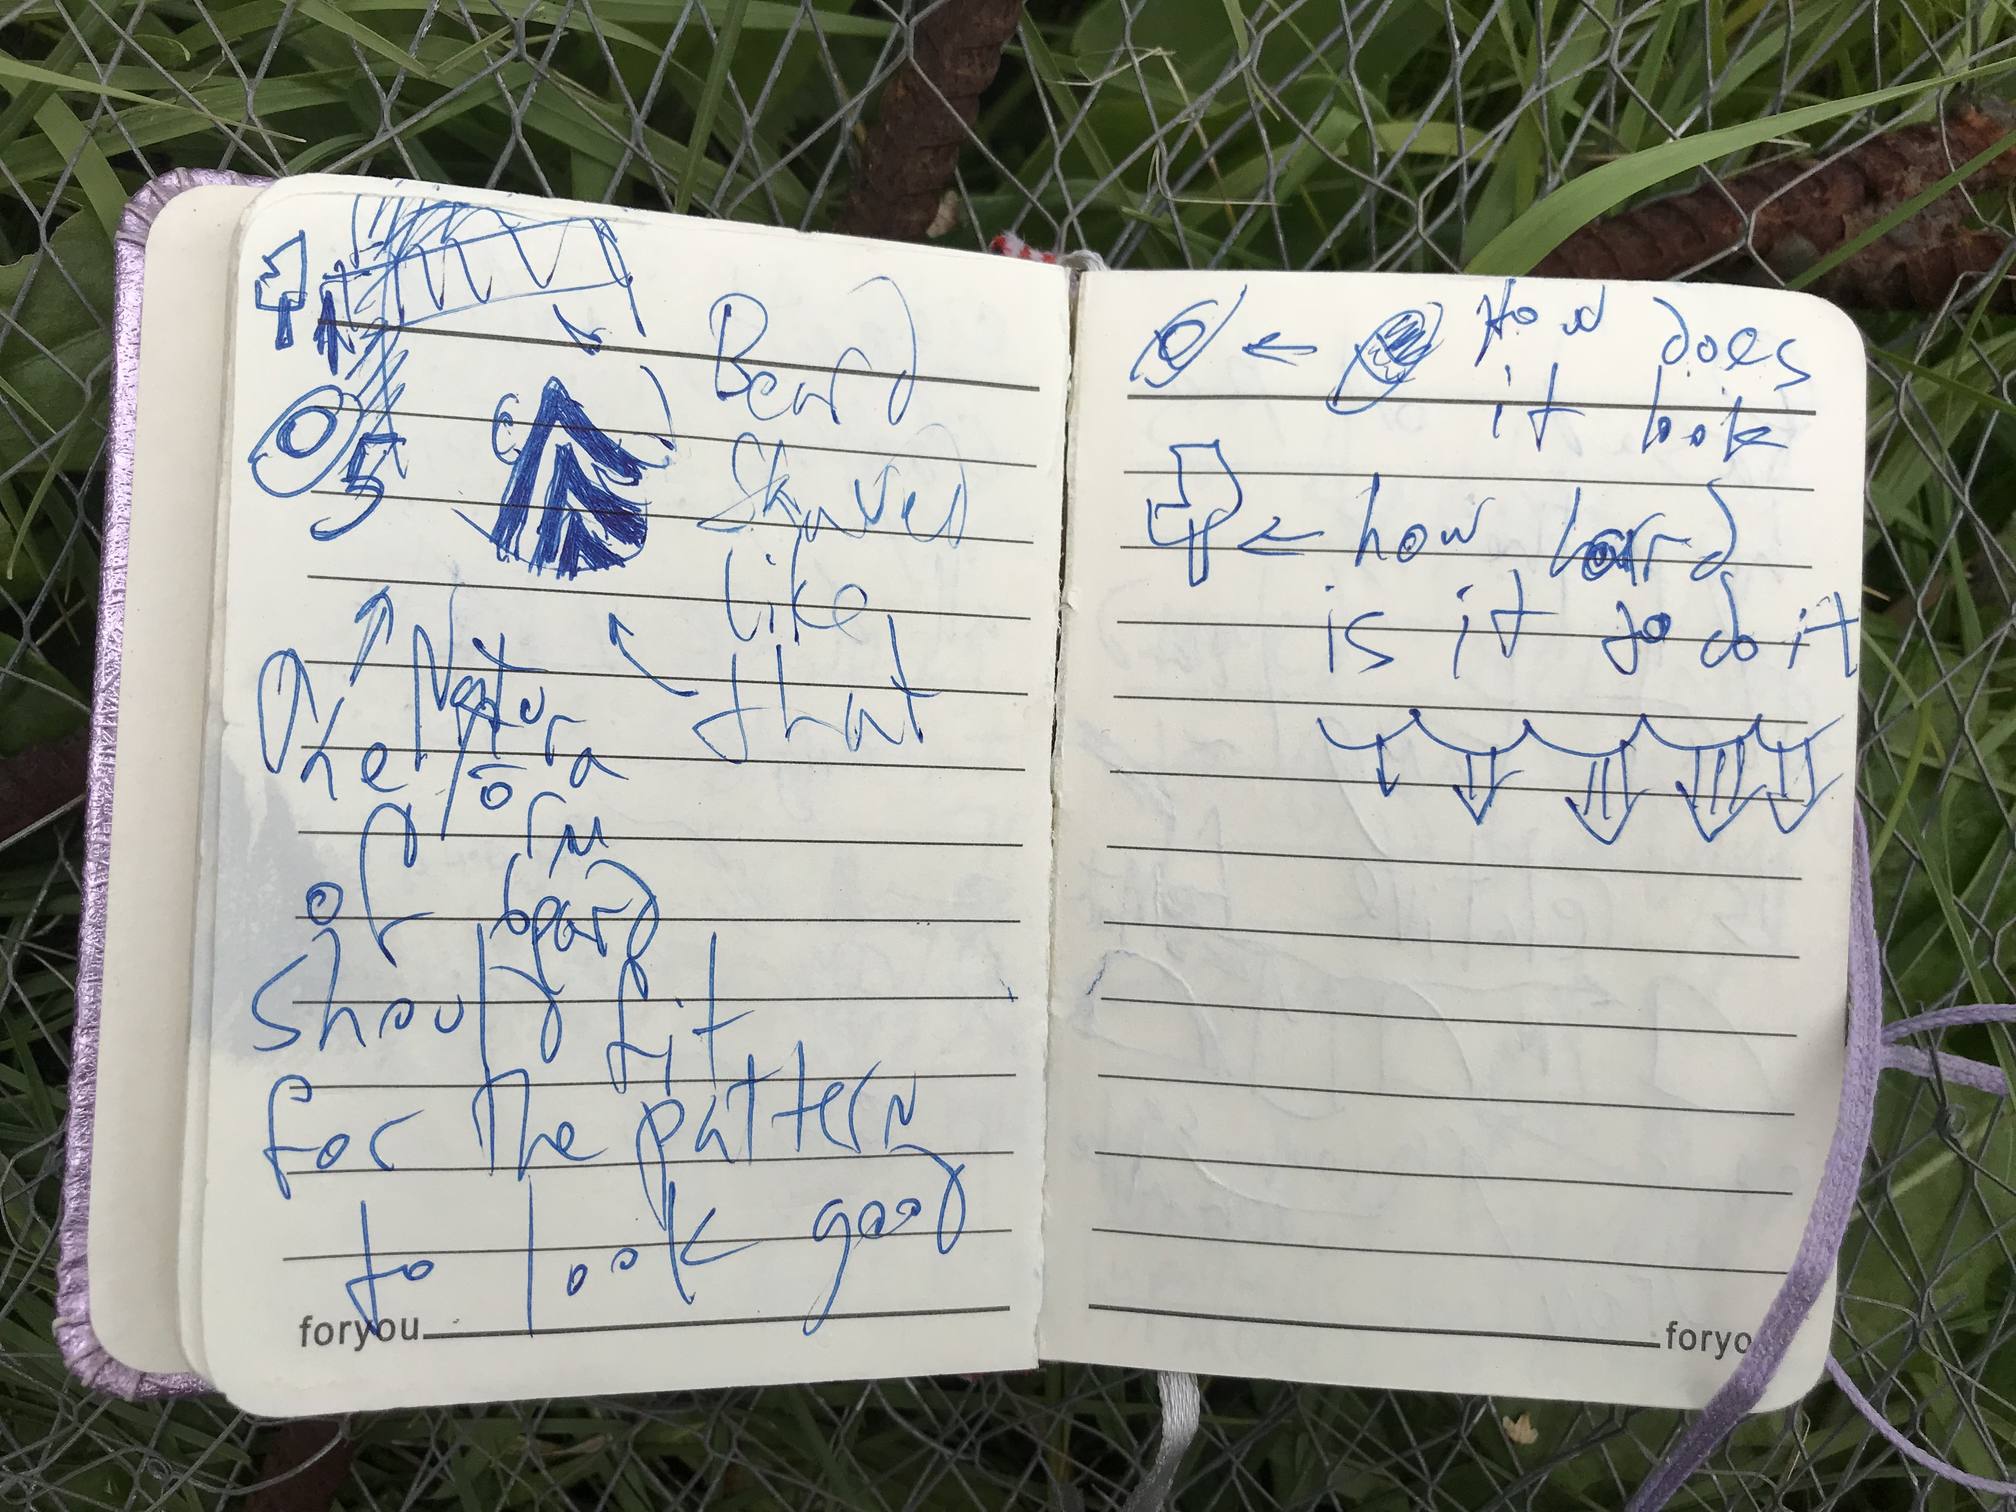 5
Beard
Shaved
like
that
The Natura
form
of beard
should fit
for the pattern
to look good
foryou
How does
it look
how hard
is it to do it
foryo